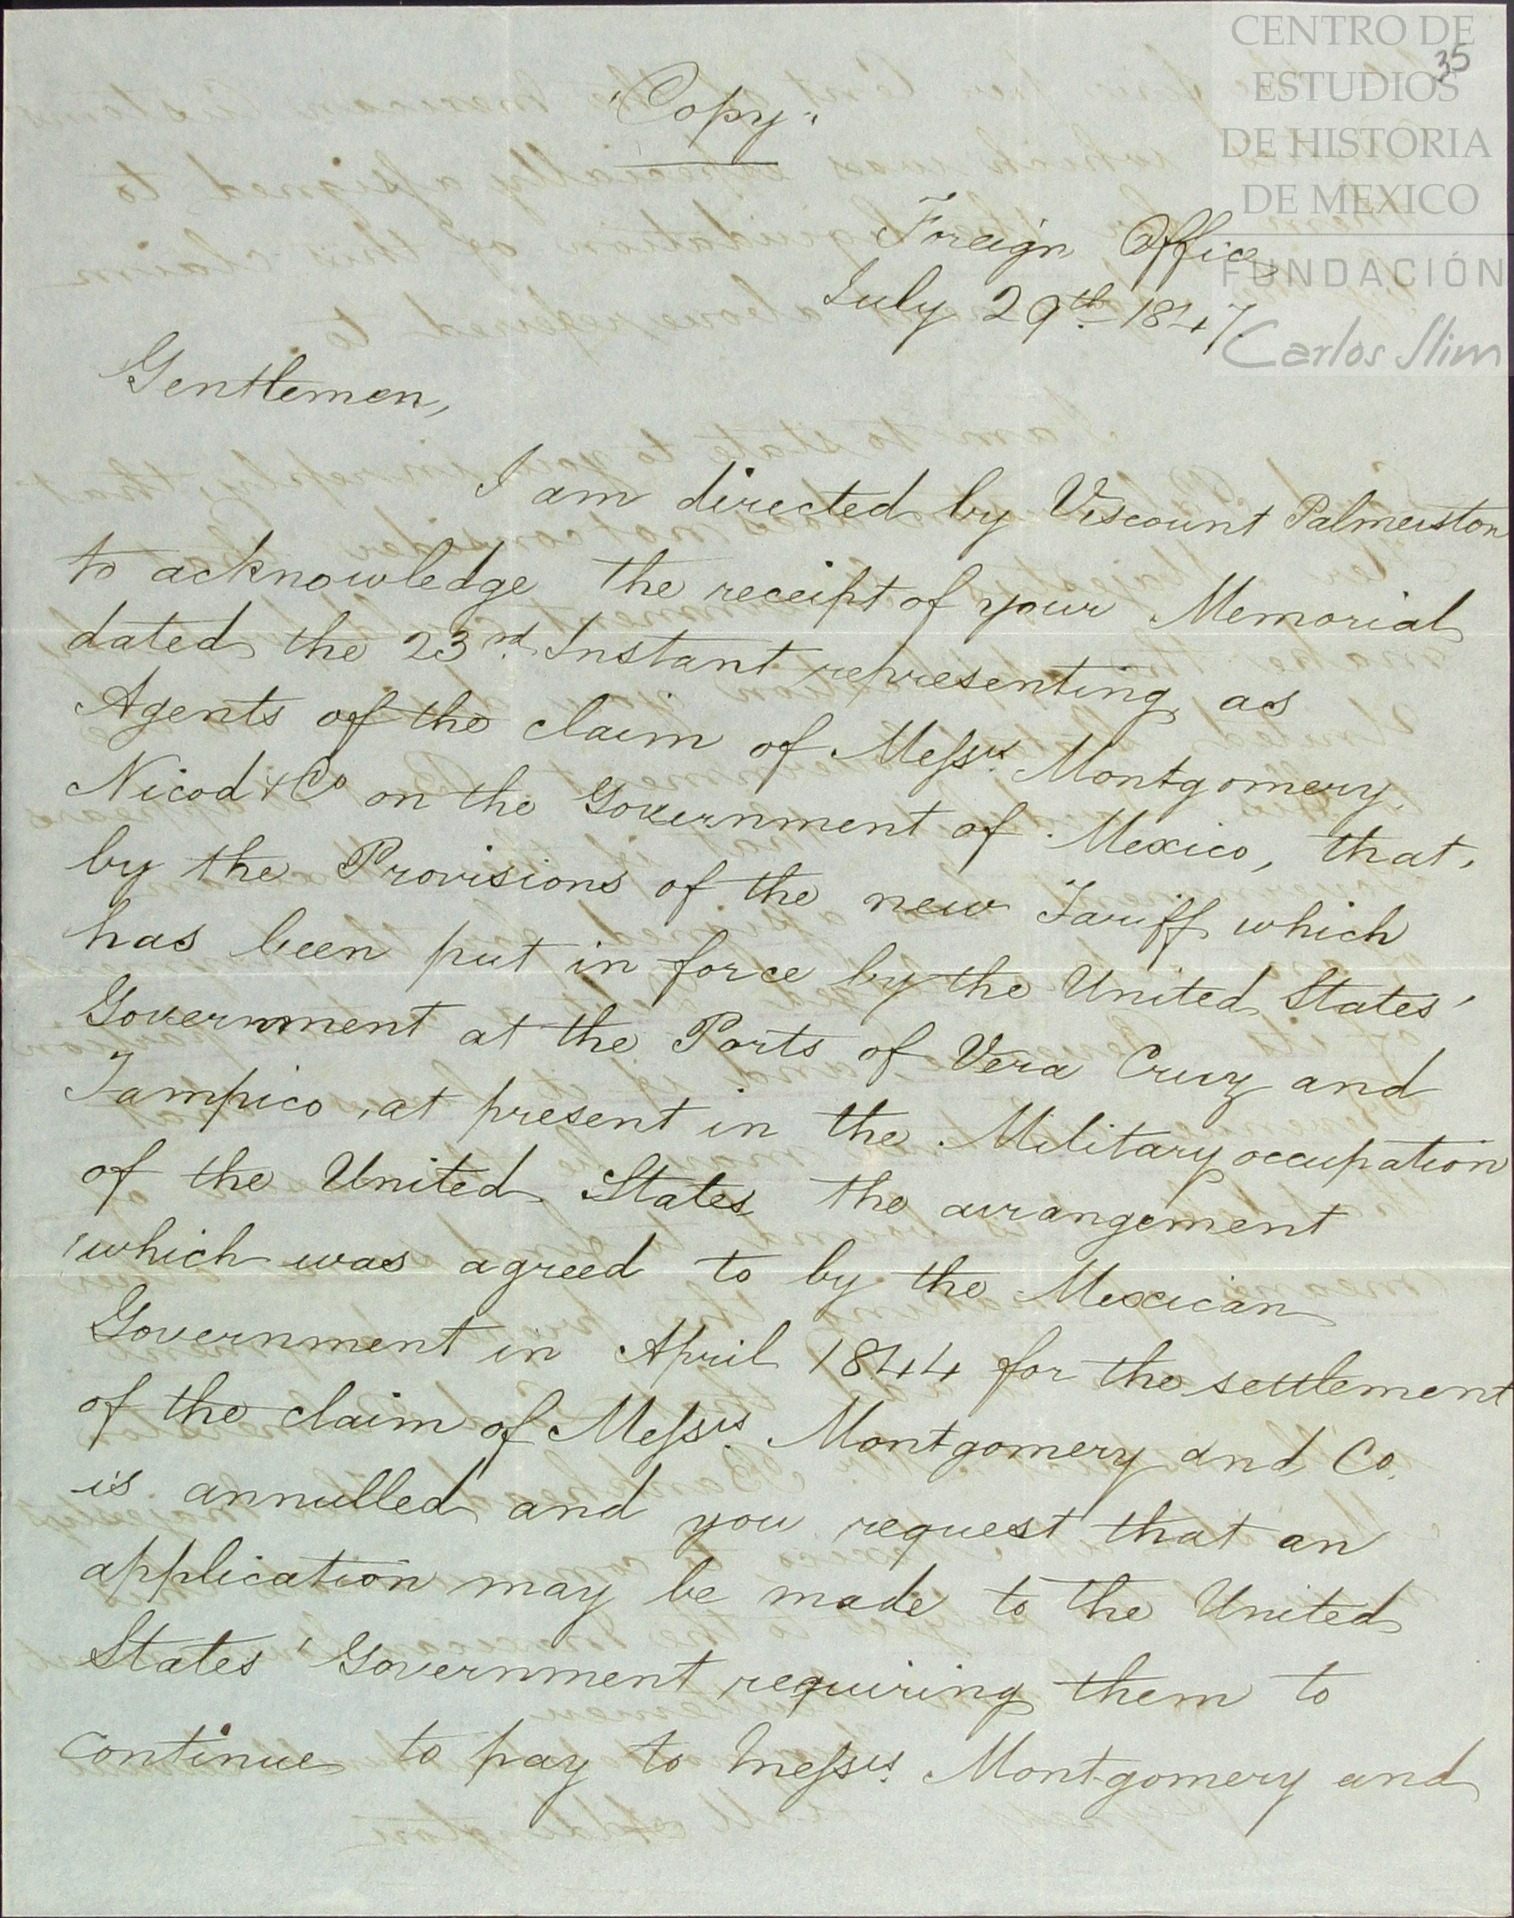 35
CENTRO DE
ESTUDIOS
DE HISTORIA
DE MEXICO
FUNDACIÓN
Carlos Slim
"Copy"
Foreign Office
July 29th 1847.
Gentlemen,
I am directed by Viscount Palmerston
to acknowledge the receipt of your Memorial
dated the 23rd Instant representing, as
Agents of the claim of Messrs. Montgomery,
Nicod & Co on the Government of Mexico, that,
by the Provisions of the new Tariff which
has been put in force by the United States'
Government at the Ports of Vera Cruz and
Tampico, at present in the Military occupation
of the United States the arrangement
which was agreed to by the Mexican
Government in April 1844 for the settlement
of the claim of Messrs. Montgomery and Co.
is annulled and you request that an
application may be made to the United
States' Government requiring them to
continue to pay to Messrs. Montgomery and